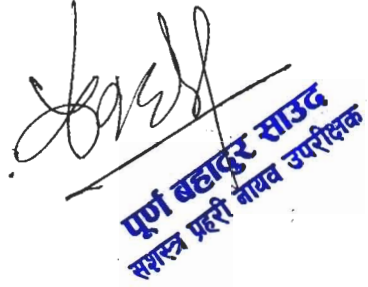 पूर्ण बहादुर साउद
सशस्त्र प्रहरी नायव उपरीक्षक